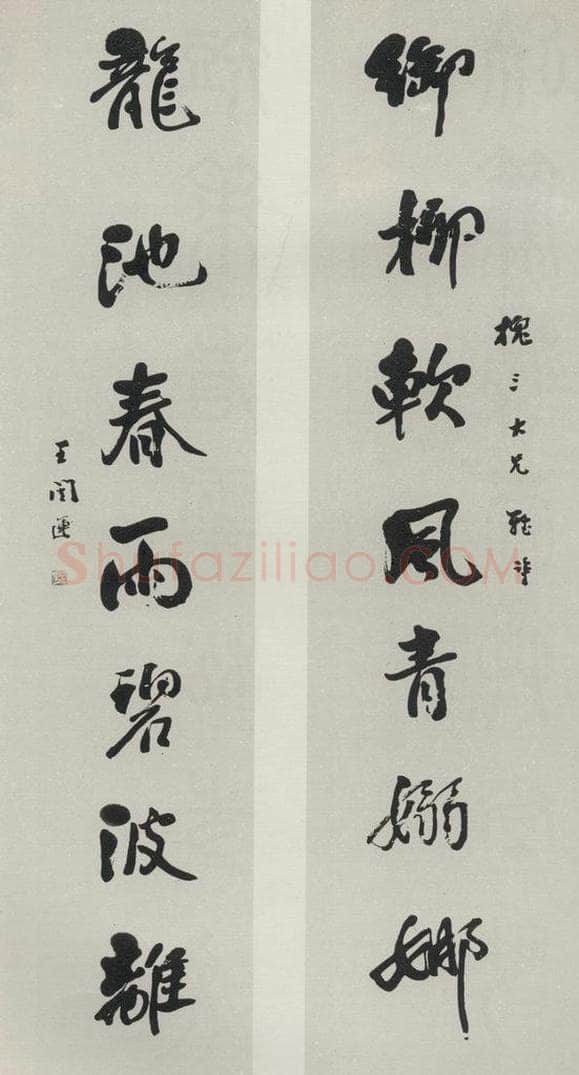 槐三大兄雅評
御柳軟風青嫋娜
龍池春雨碧波離
王闓運
Shufaziliao.COM